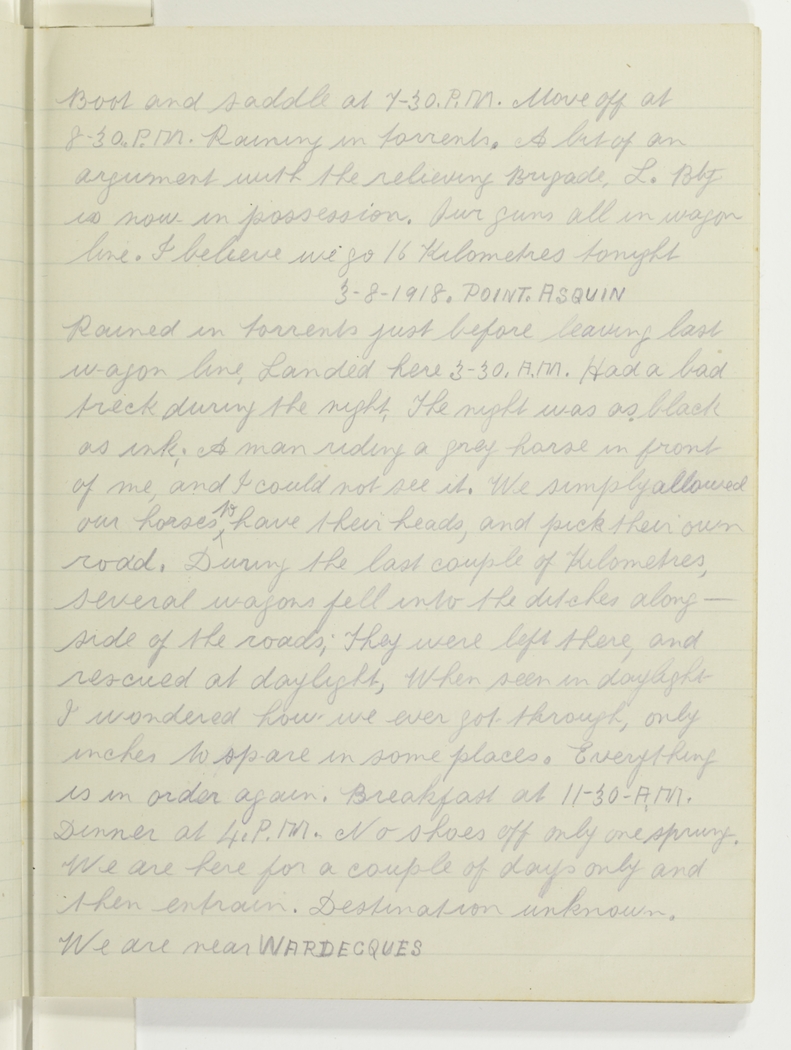 Boot and saddle at 7-30.P.M. Move off at
8-30.P.M. Raining in torrents. A bit of an
argument with the relieving Brigade, L. Bty
is now in possession. Our guns all in wagon
line. I believe we go 16 Kilometres tonight
3-8-1918. POINT. ASQUIN
Rained in torrents just before leaving last
wagon line, Landed here 3-30. A.M. Had a bad
treck during the night, The night was as black
as ink; A man riding a grey horse in front
of me, and I could not see it. We simply allowed
our horses, to have their heads, and pick their own
road. During the last couple of Kilometres,
several wagons fell into the ditches along—
side of the roads; They were left there, and
rescued at daylight, When seen in daylight
I wondered how we ever got through, only
inches to spare in some places. Everything
is in order again. Breakfast at 11-30-A.M.
Dinner at 4.P.M. No shoes off only one sprung.
We are here for a couple of days only and
then entrain. Destination unknown.
We are near WARDECQUES